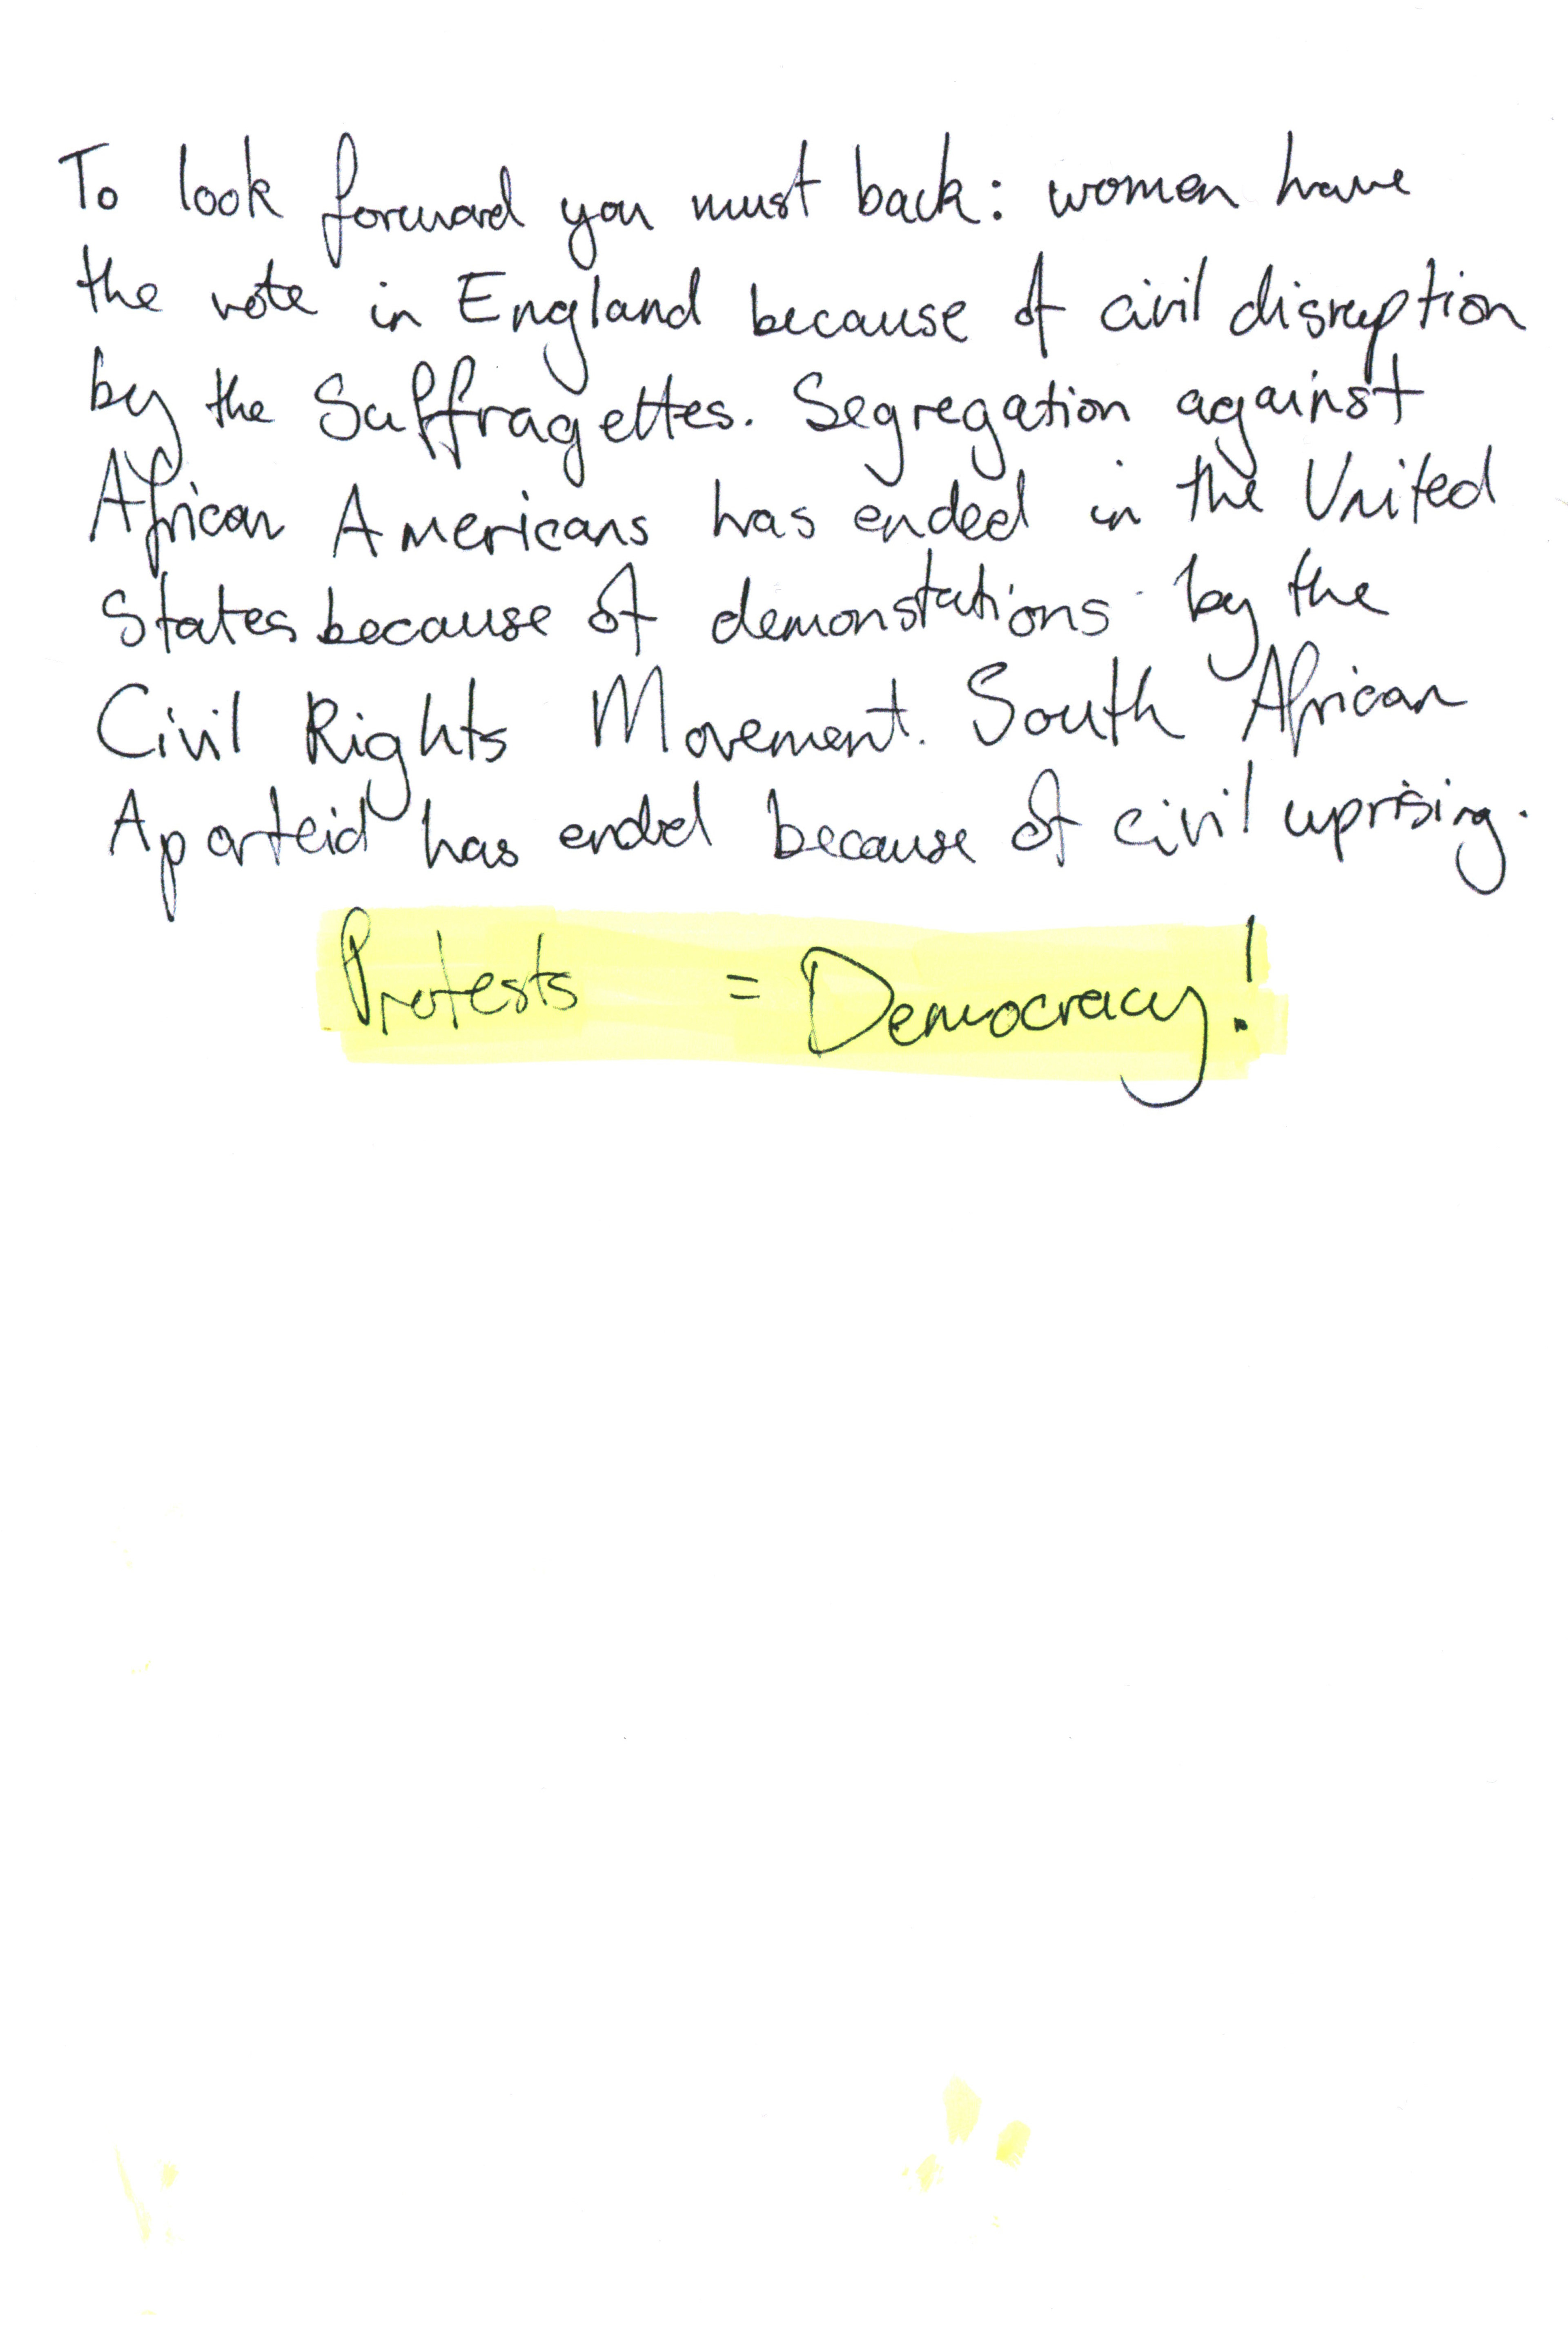 To look forward you must back: women have
the vote in England because of civil disruption
by the Suffragettes. Segregation against
African Americans has ended in the United
States because of demonstations by the
Civil Rights Movement. South African
Aparteid has ended because of civil uprising.
Protests = Democracy!